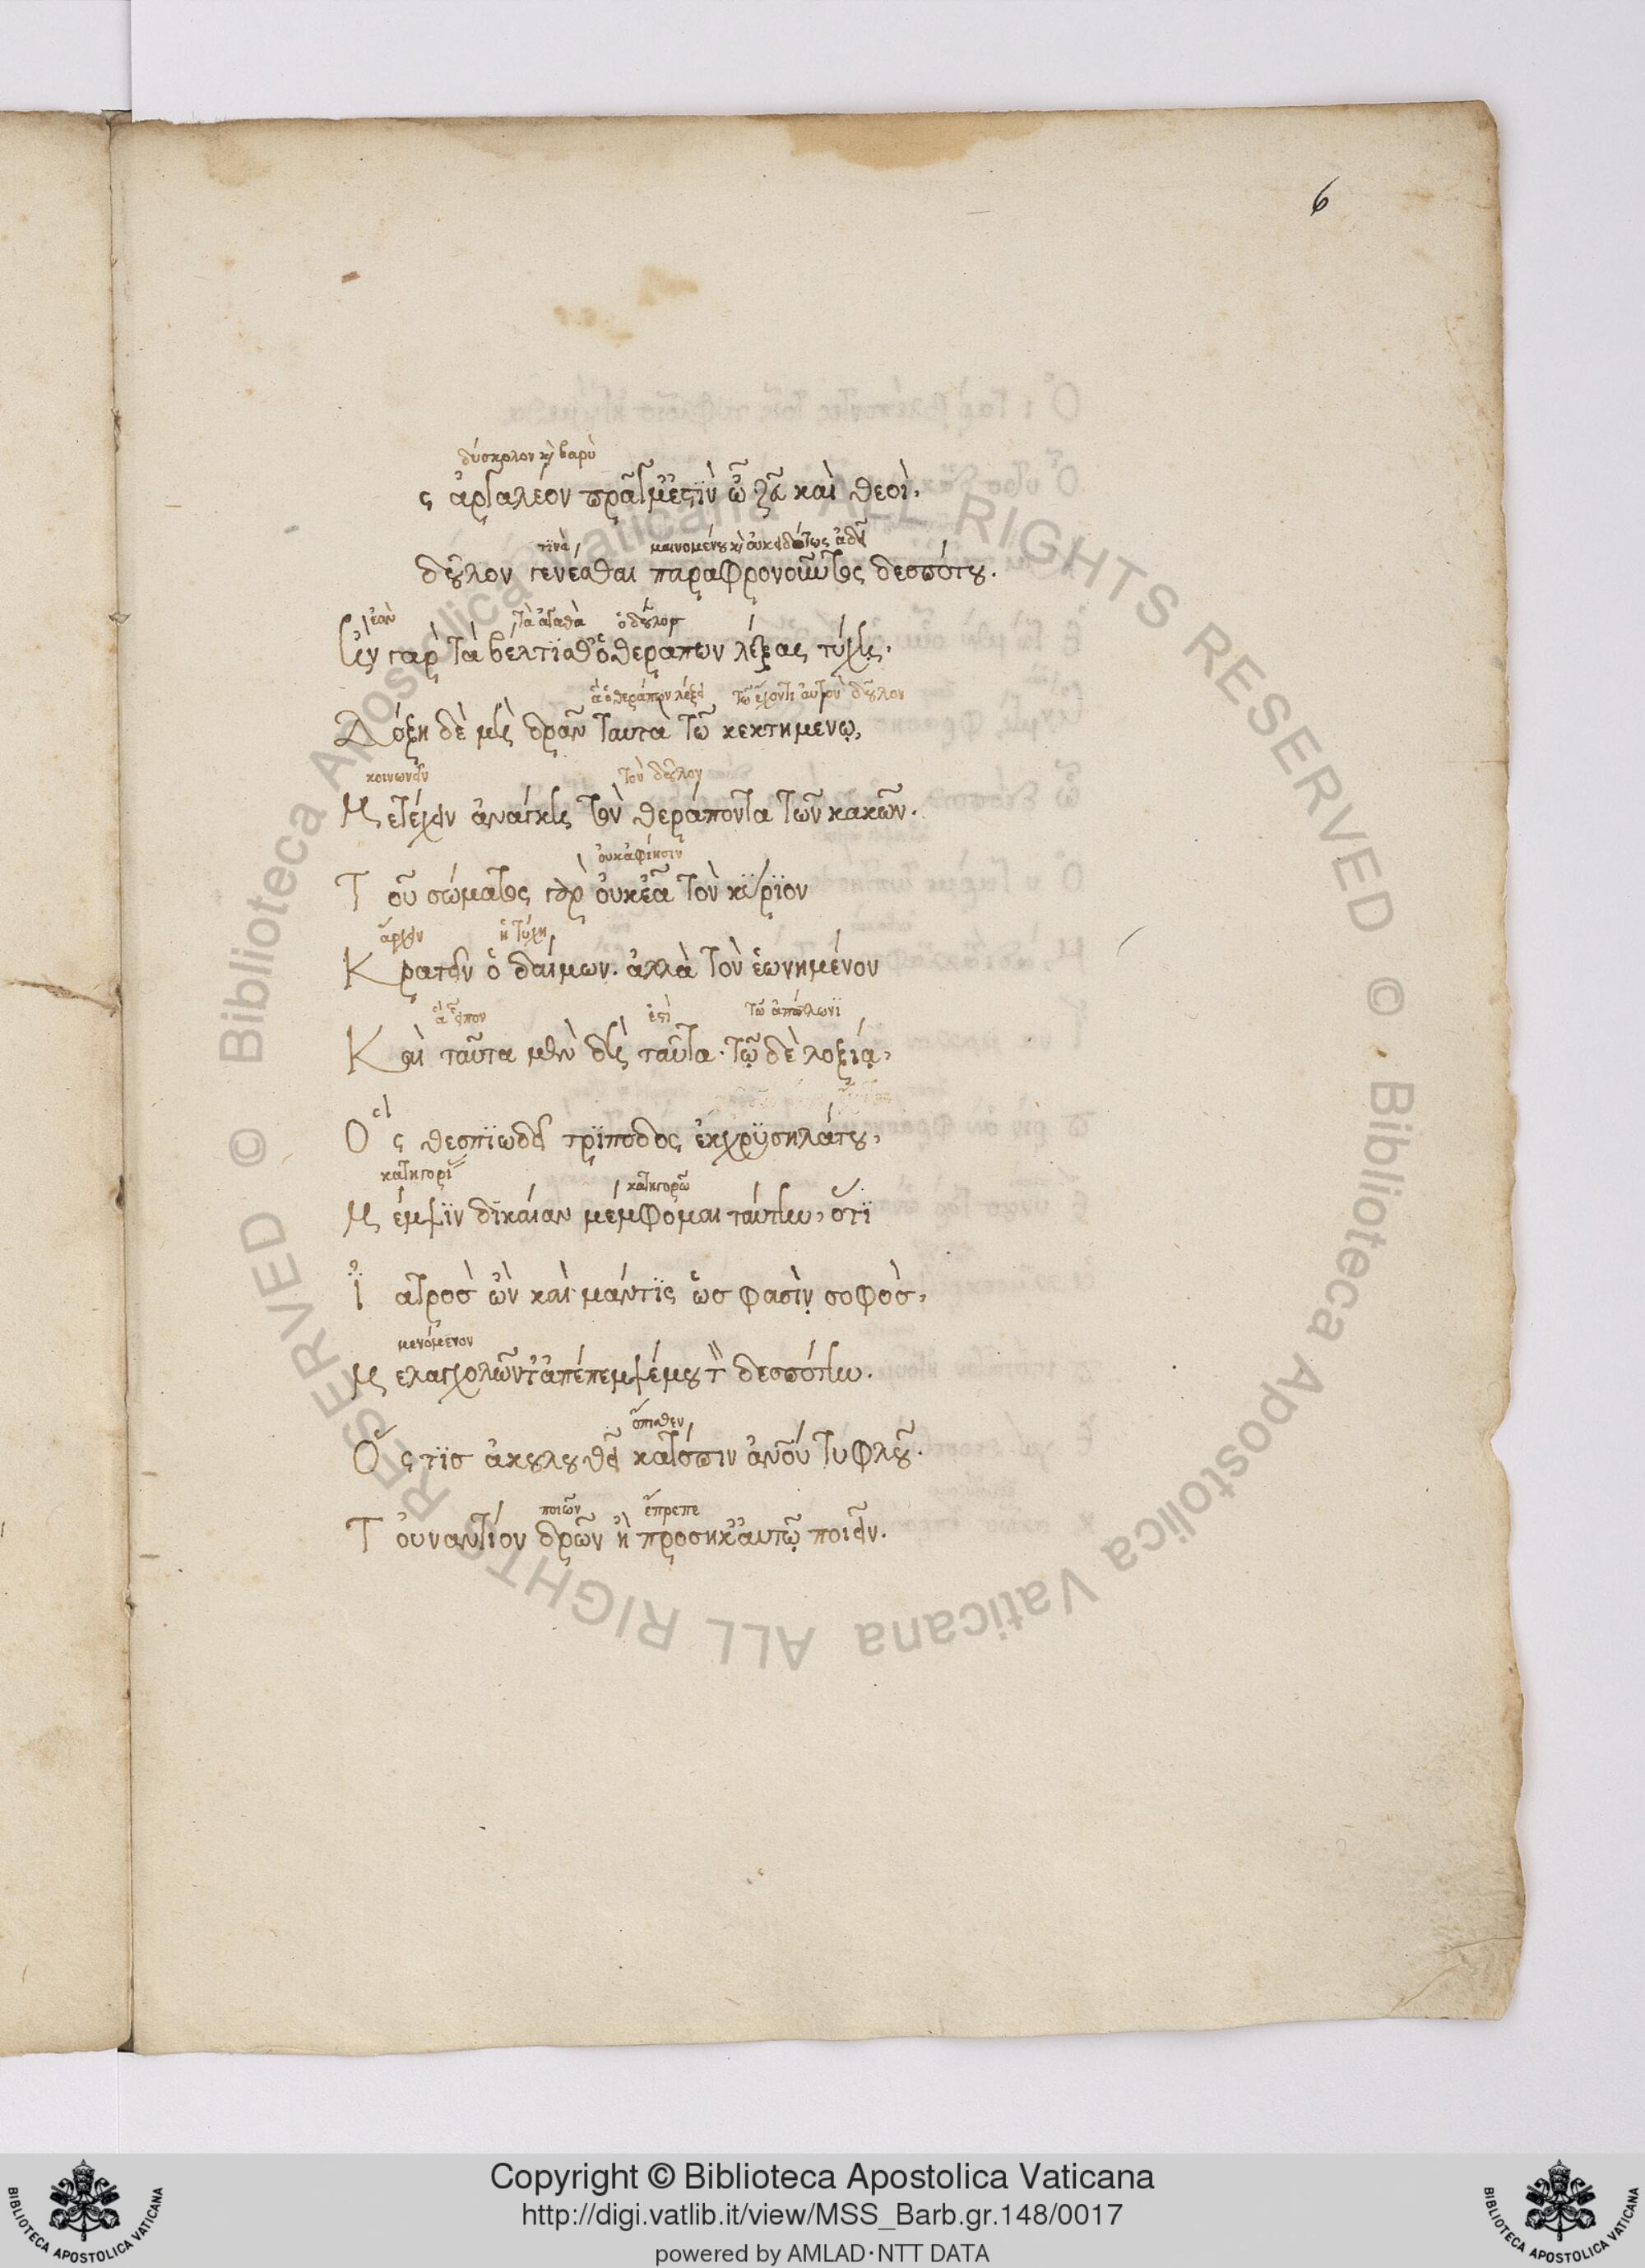 6
δύσκολον κ̀ βαρὺ
ς ἀργαλέον πρᾶγμ' ἐστὶν ὦ ζεῦ καὶ θεοὶ,
τινὰ μαινομένου κ̀ οὐκ
δοῦλον γενέσθαι παραφρονοῦντος δεσπότου.
ἐὰν τὰ ἀγαθὰ ὁ δοῦλος
ἢν γαρ τὰ βέλτισθ' ὁ θεράπων λέξας τύχῃ,
ἃ ὁ θεράπων λέξει τῶ ἔχοντι αὐτὸν δοῦλον
Δόξη δὲ μὴ δρᾶν ταυτὰ τῶ κεκτημενῳ,
κοινωνεῖν τὸν δοῦλον
Μετέχειν ἀνάγκη τὸν θεράποντα τῶν κακῶν.
οὐκ ἀφίησιν
Τοῦ σώματος γὰρ οὐκ ἐᾶ τὸν κύριον
ἄρχειν ἡ τύχη
Κρατεῖν ὁ δαίμων. ἀλλὰ τὸν ἐωνημένον
ἃ εἶπον ἐστὶ τῶ ἀπόλωνι
Καὶ ταῦτα μὲν δὴ ταῦτα. τῷ δὲ λοξίᾳ,
Ὃς θεσπιωδεῖ τρίποδος ἐκ χρυσηλάτου,
κατηγορί κατηγορῶ
Μέμψιν δικαίαν μέμφομαι ταύτην, ὅτι
Ἰατρὸσ ὢν καὶ μάντις ὥσ φασὶν σοφὸσ,
μενόμενον
Μελαγχολῶντ' ἀπέπεμψέ μου τὸν δεσπότην.
ὄπισθεν
Ὅςτισ ἀκουλουθεῖ κατόπιν ἀνο̅ύ τυφλοῦ.
ποιῶν ἔπρεπε
Τοὐναντίον δρῶν ἢ προσηκ' αυτῷ ποιεῖν.
Copyright © Biblioteca Apostolica Vaticana
http://digi.vatlib.it/view/MSS_Barb.gr.148/0017
powered by AMLAD·NTT DATA
BIBLIOTECA APOSTOLICA VATICANA
BIBLIOTECA APOSTOLICA VATICANA
© Biblioteca Apostolica Vaticana ALL RIGHTS RESERVED © Biblioteca Apostolica Vaticana ALL RIGHTS RESERVED